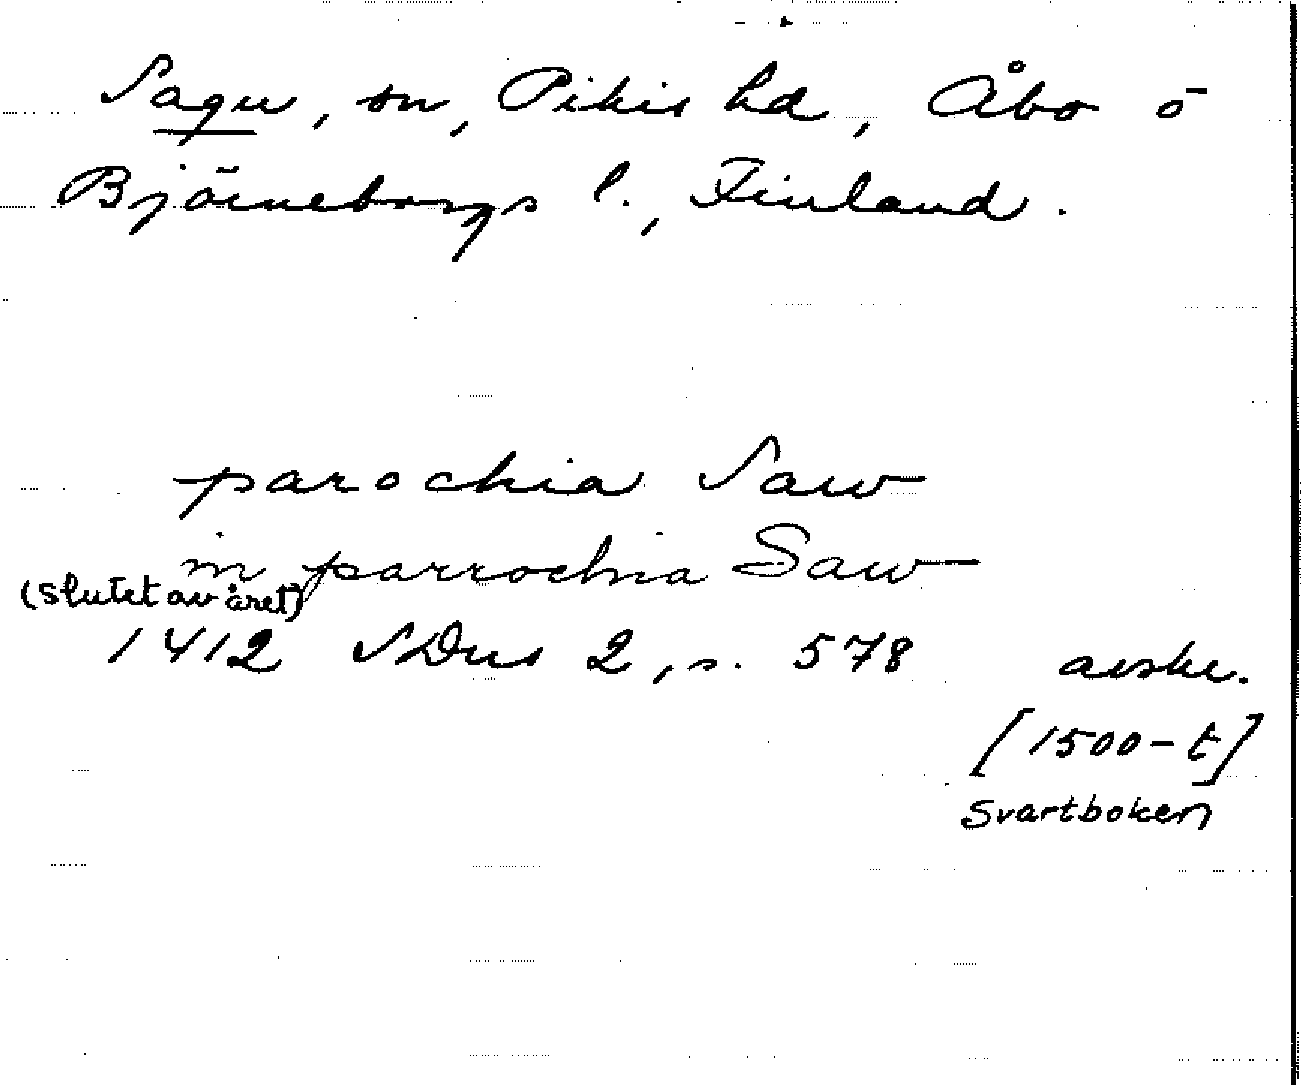 Sagu, sn, Pikis hd, Åbo o
Björneborgs l., Finland.
parochia Saw
in parrochia Saw
(slutet av året)
1412 SDns 2, s. 578 avskr.
[1500-t]
Svartboken